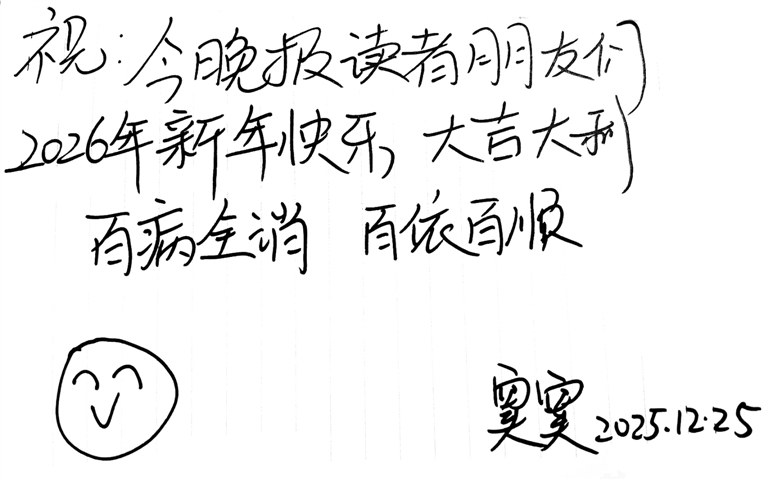 祝:今晚报读者朋友们
2026年新年快乐,大吉大利
百病全消 百依百顺
窦窦 2025.12.25